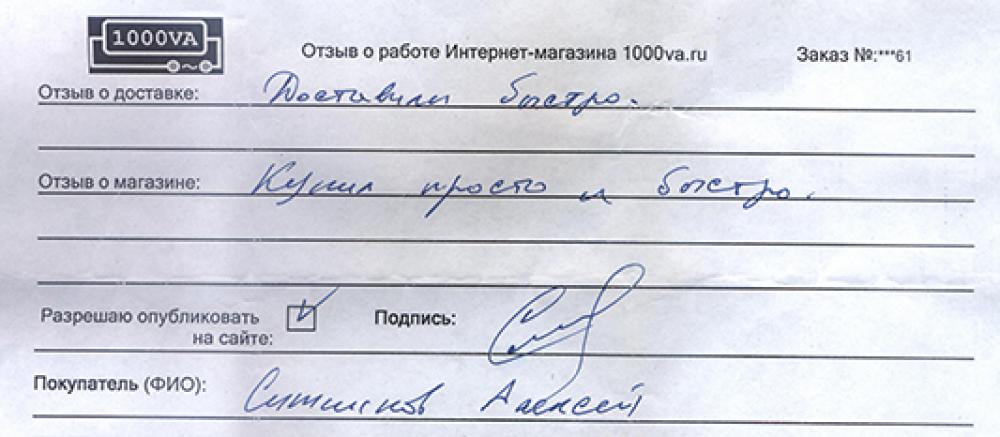 1000VA
Отзыв о работе Интернет-магазина 1000va.ru
Заказ №:***61
Отзыв о доставке: Доставили быстро.
Отзыв о магазине: Купил просто и быстро.
Разрешаю опубликовать
на сайте:
Подпись:
Покупатель (ФИО): Алексей